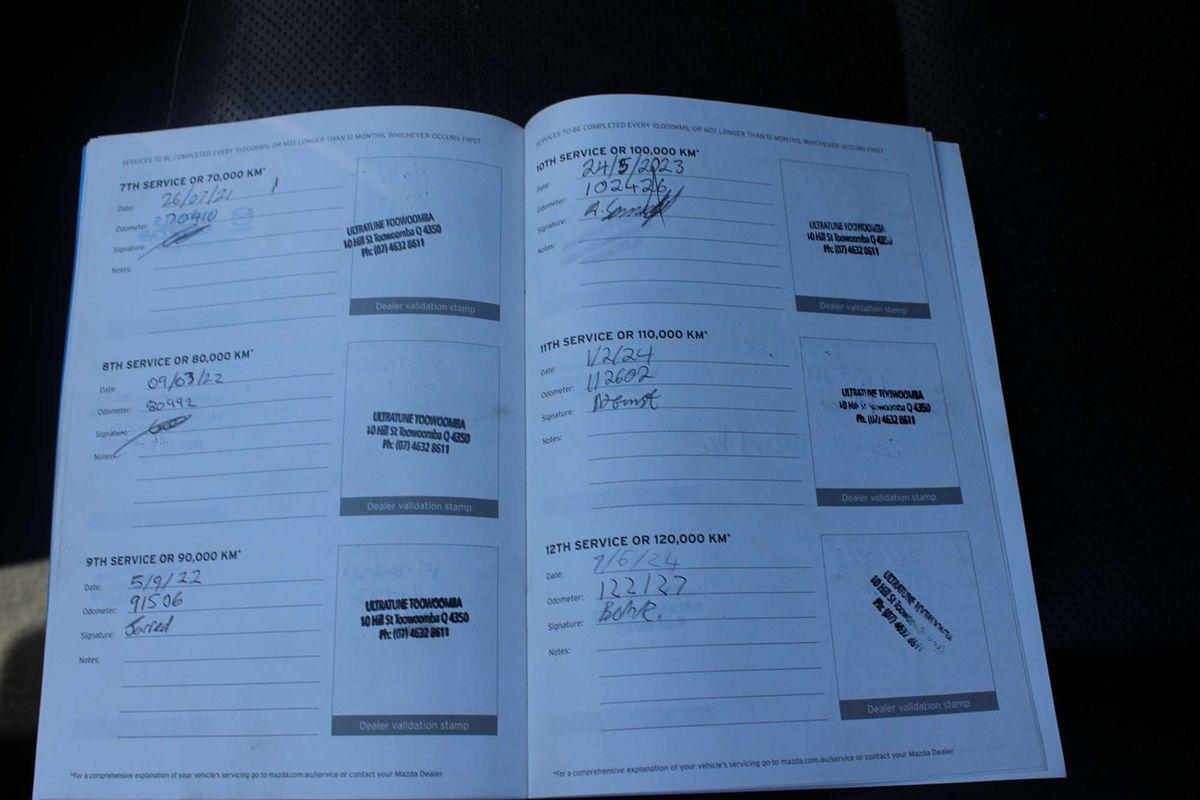 SERVICES TO BE COMPLETED EVERY 10,000KMS, OR NOT LONGER THAN 12 MONTHS, WHICHEVER OCCURS FIRST
7TH SERVICE OR 70,000 KM*
Date: 26/07/21
Odometer: 70410
Signature:
Notes:
ULTRATUNE TOOWOOMBA
10 Hill St Toowoomba Q 4350
Ph: (07) 4632 8611
Dealer validation stamp
8TH SERVICE OR 80,000 KM*
Date: 09/03/22
Odometer: 80992
Signature:
Notes:
ULTRATUNE TOOWOOMBA
10 Hill St Toowoomba Q 4350
Ph: (07) 4632 8611
Dealer validation stamp
9TH SERVICE OR 90,000 KM*
Date: 5/9/22
Odometer: 91506
Signature: Jarred
Notes:
ULTRATUNE TOOWOOMBA
10 Hill St Toowoomba Q 4350
Ph: (07) 4632 8611
Dealer validation stamp
*For a comprehensive explanation of your vehicle's servicing go to mazda.com.au/service or contact your Mazda Dealer
SERVICES TO BE COMPLETED EVERY 10,000KMS, OR NOT LONGER THAN 12 MONTHS, WHICHEVER OCCURS FIRST
10TH SERVICE OR 100,000 KM*
Date: 24/5/2023
Odometer: 102426
Signature: A.
Notes:
ULTRATUNE TOOWOOMBA
10 Hill St Toowoomba Q 4350
Ph: (07) 4632 8611
Dealer validation stamp
11TH SERVICE OR 110,000 KM*
Date: 1/2/24
Odometer: 112602
Signature:
Notes:
ULTRATUNE TOOWOOMBA
10 Hill St Toowoomba Q 4350
Ph: (07) 4632 8611
Dealer validation stamp
12TH SERVICE OR 120,000 KM*
Date: /6/24
Odometer: 122127
Signature:
Notes:
ULTRATUNE TOOWOOMBA
10 Hill St Toowoomba
Ph: (07) 4632 8611
Dealer validation stamp
*For a comprehensive explanation of your vehicle's servicing go to mazda.com.au/service or contact your Mazda Dealer